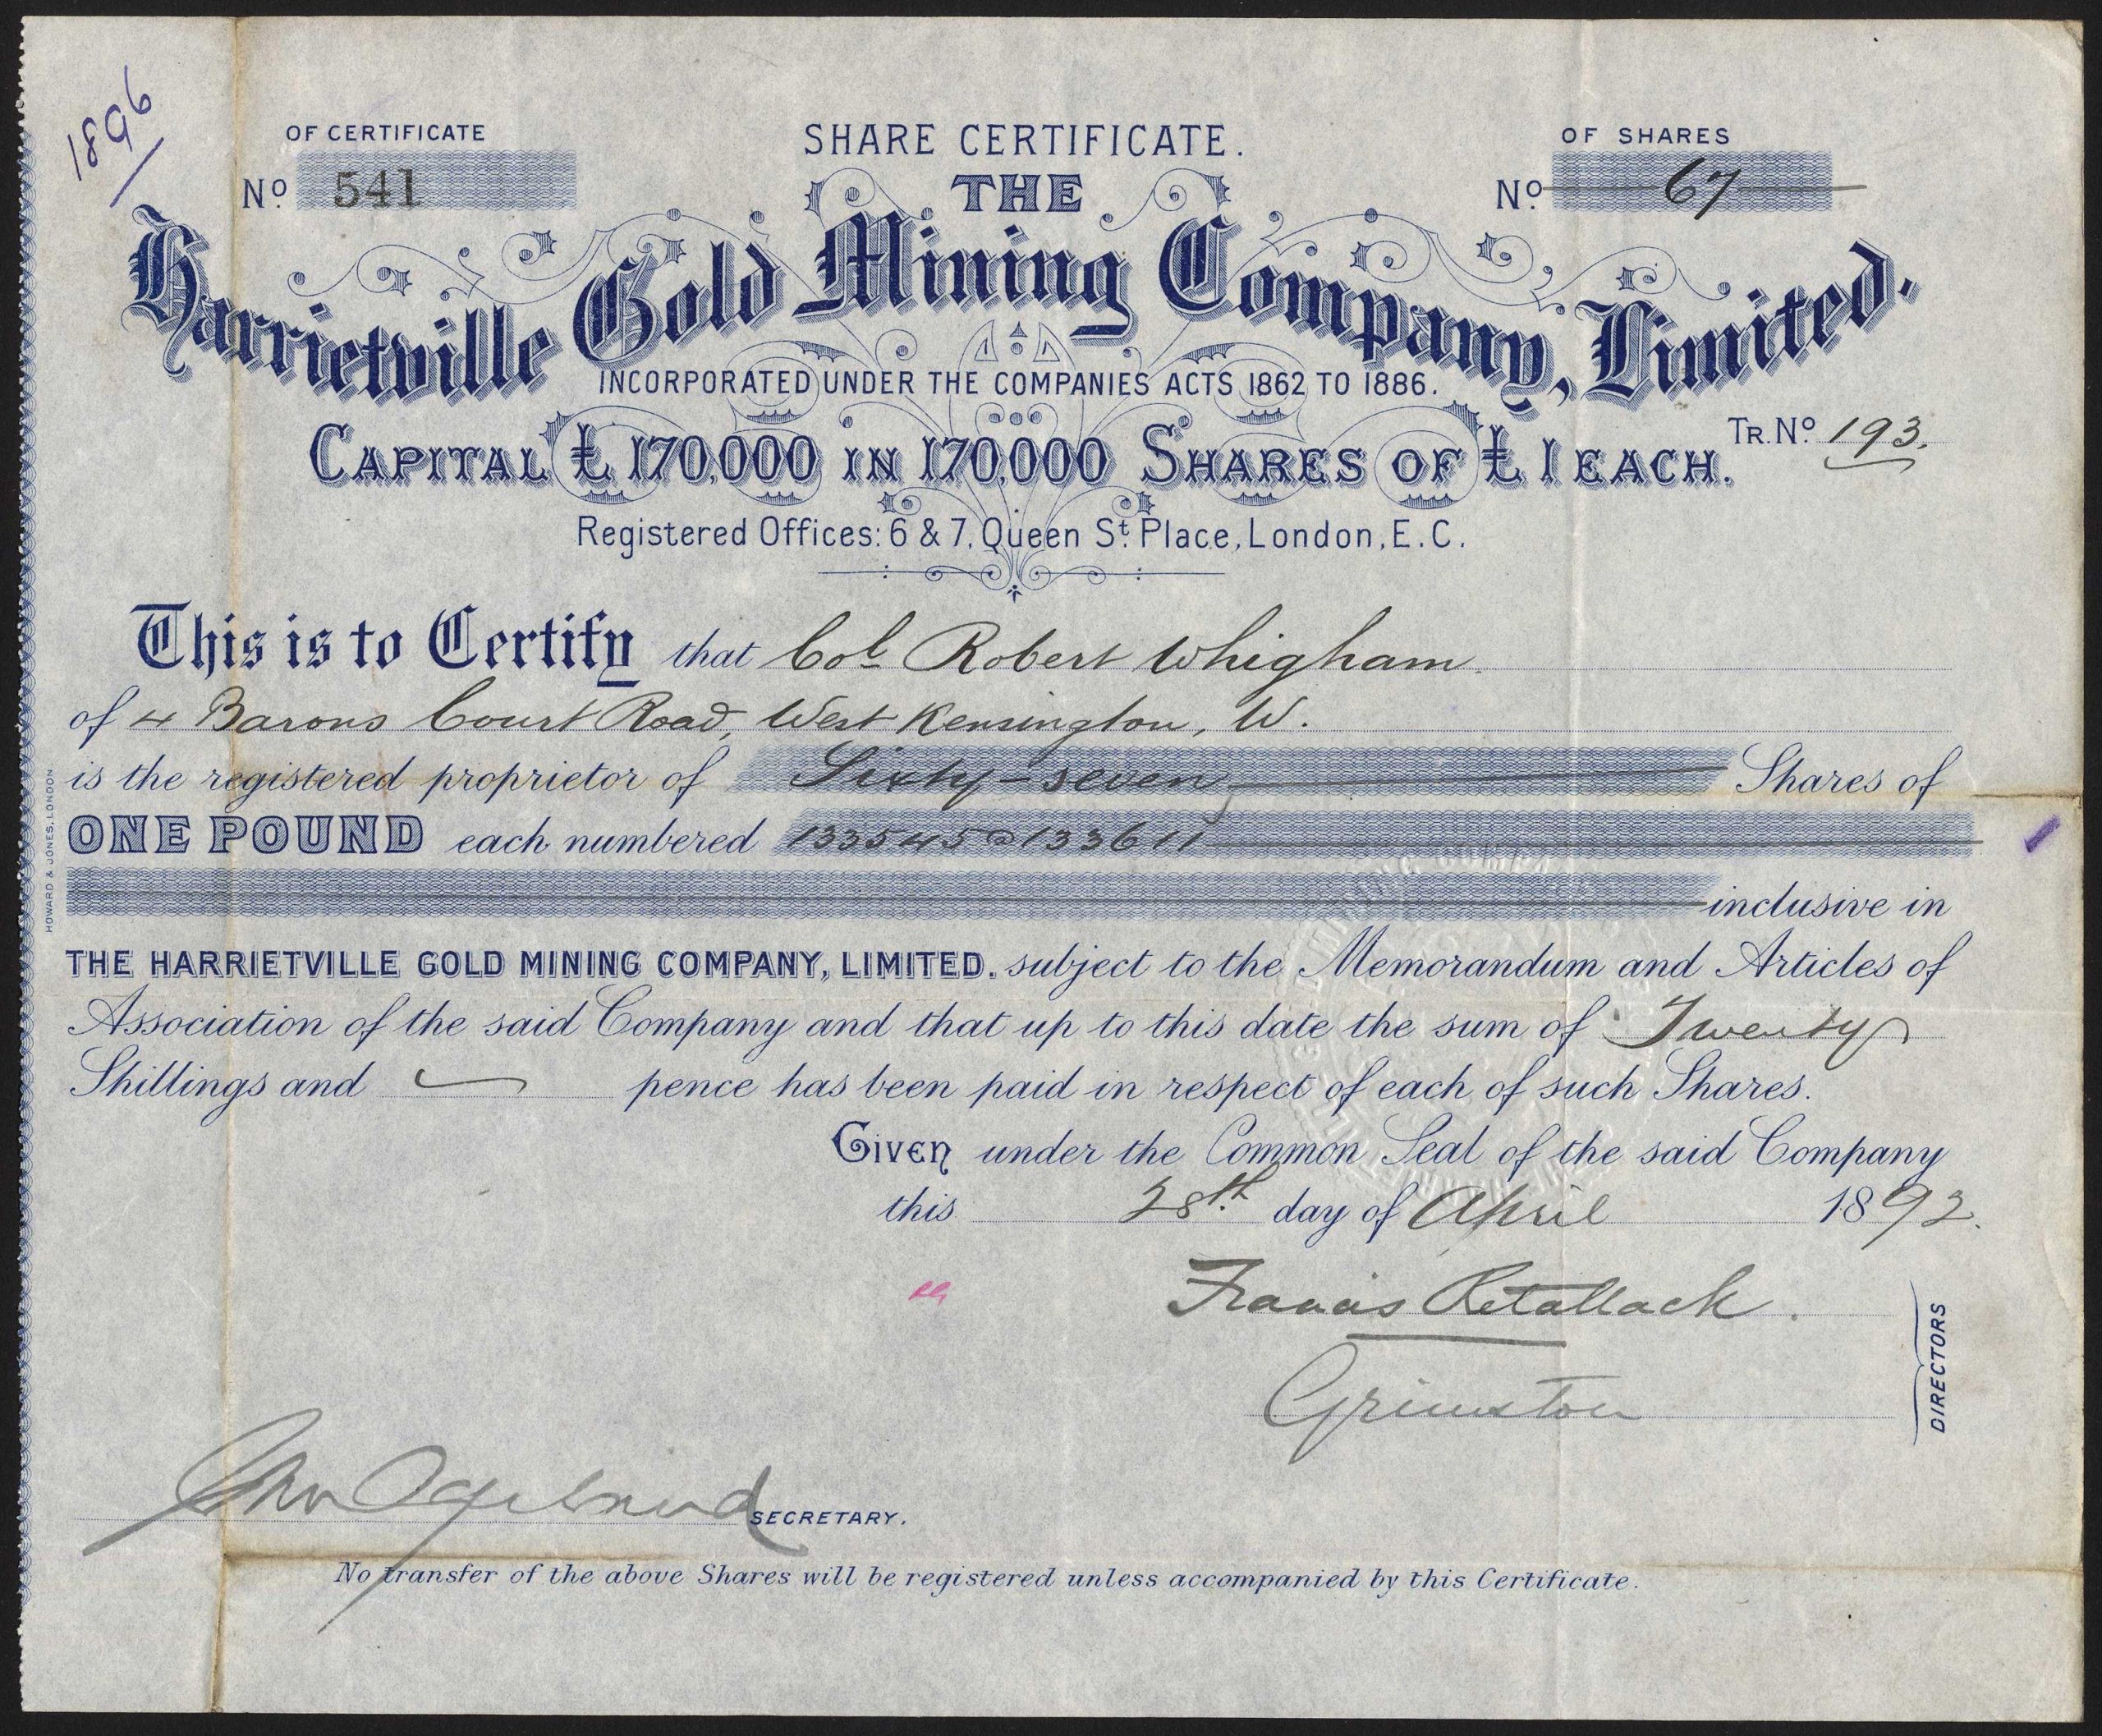 1896
OF CERTIFICATE
Nº 541
SHARE CERTIFICATE.
OF SHARES
Nº 67
THE
Harrietville Gold Mining Company, Limited.
INCORPORATED UNDER THE COMPANIES ACTS 1862 TO 1886.
CAPITAL £170,000 IN 170,000 SHARES OF £1 EACH.
TR. Nº 193.
Registered Offices: 6 & 7, Queen St. Place, London, E.C.
This is to Certify that Col Robert Whigham
of 4 Barons Court Road, West Kensington, W.
is the registered proprietor of Sixty-seven Shares of
ONE POUND each numbered 133545 @ 133611
inclusive in
THE HARRIETVILLE GOLD MINING COMPANY, LIMITED. subject to the Memorandum and Articles of
Association of the said Company and that up to this date the sum of Twenty
Shillings and — pence has been paid in respect of each of such Shares.
GIVEN under the Common Seal of the said Company
this 28th day of April 1892.
Francis Retallack.
Grimston
DIRECTORS
SECRETARY.
No transfer of the above Shares will be registered unless accompanied by this Certificate.
HOWARD & JONES, LONDON